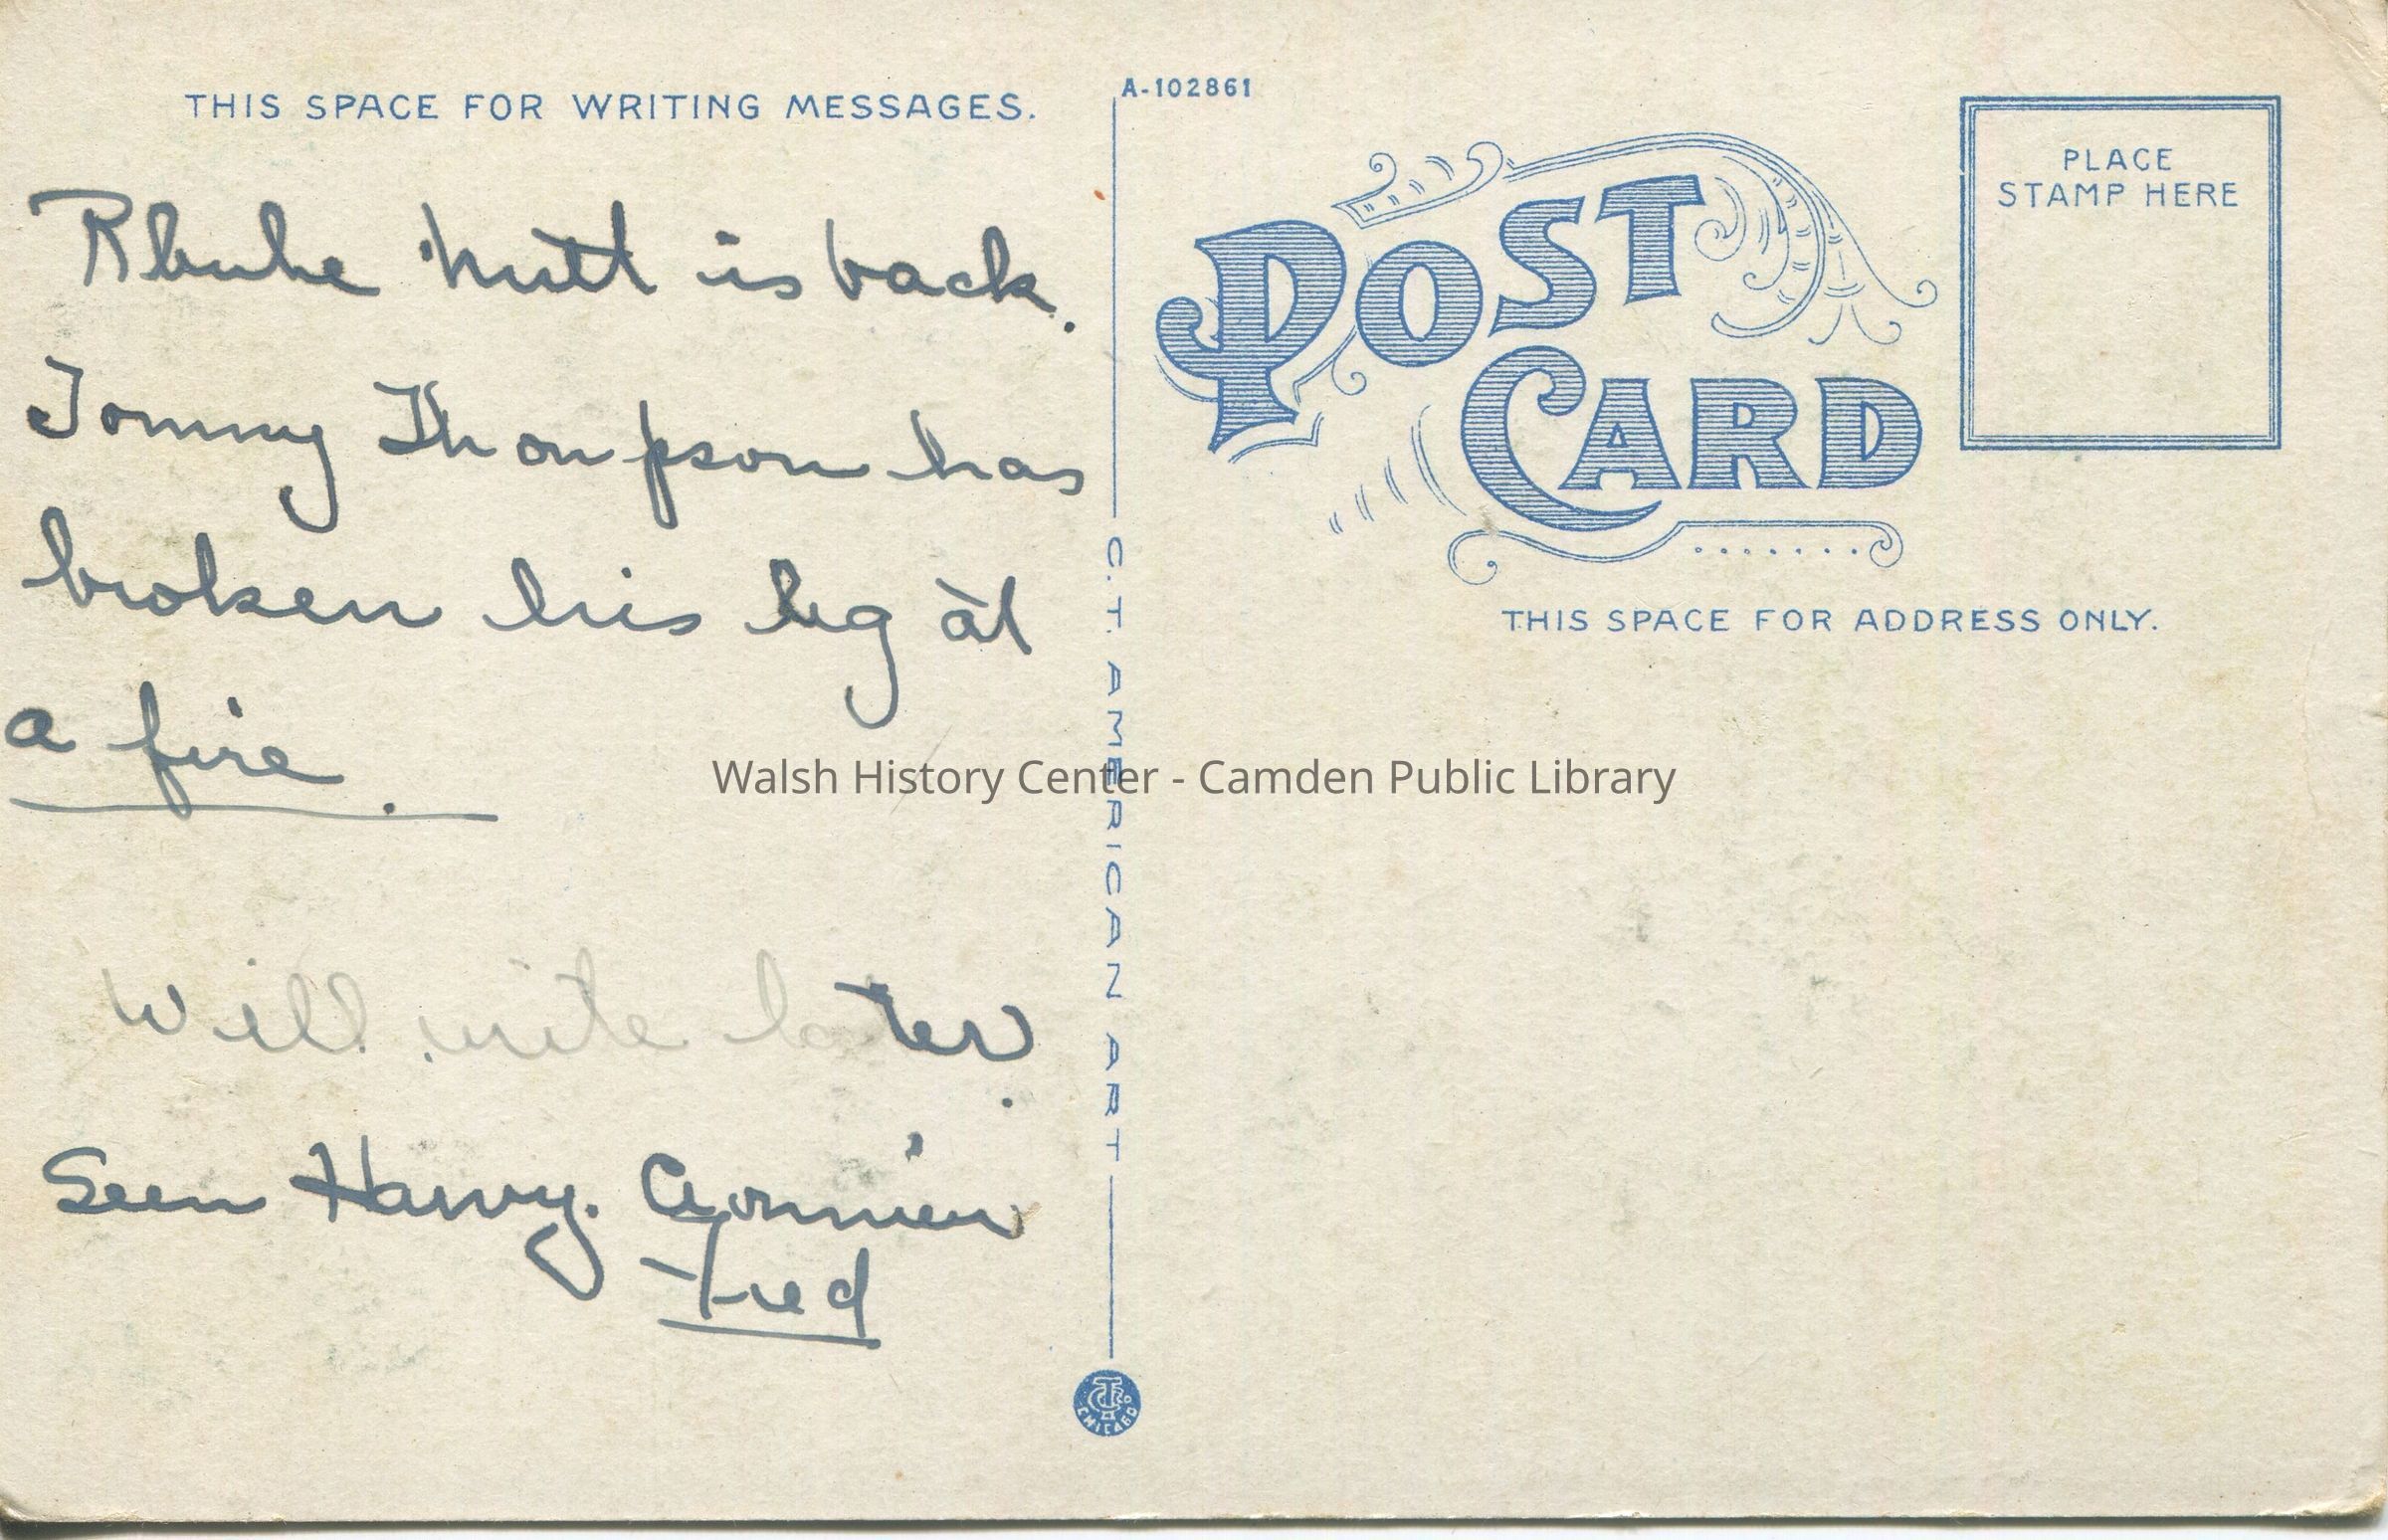 THIS SPACE FOR WRITING MESSAGES.
A-102861
POST
CARD
PLACE
STAMP HERE
THIS SPACE FOR ADDRESS ONLY.
is back.
Tommy Thompson has
broken his leg at
a fire.
Will write later.
Seen Harvy.
Fred
C.T. AMERICAN ART
CHICAGO
Walsh History Center - Camden Public Library